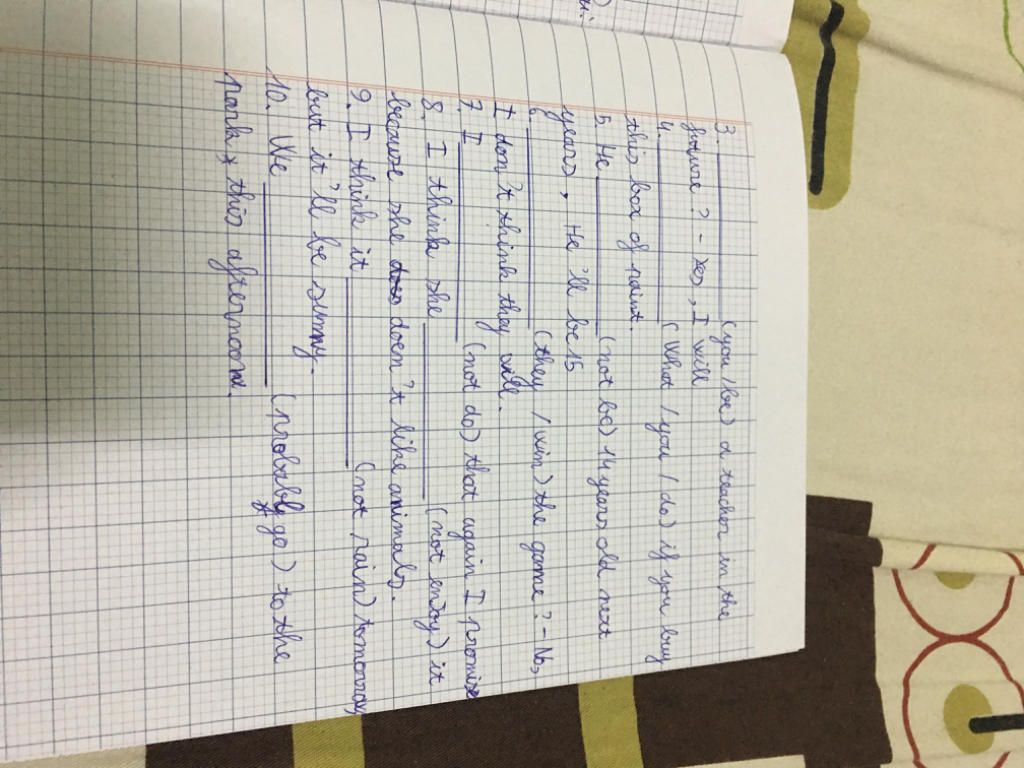 3. ____________ (you / be) a teacher in the
future? - Yes, I will
4. ____________ (What / you / do) if you buy
this box of paint.
5. He ____________ (not be) 14 years old next
years, He'll be 15
6. ____________ (they / win) the game? - No,
I don't think they will.
7. I ____________ (not do) that again I promise
8. I think she ____________ (not enjoy) it
because she doen't like animals.
9. I think it ____________ (not rain) tomorrow,
but it'll be sunny.
10. We ____________ (probably go) to the
park this afternoon.